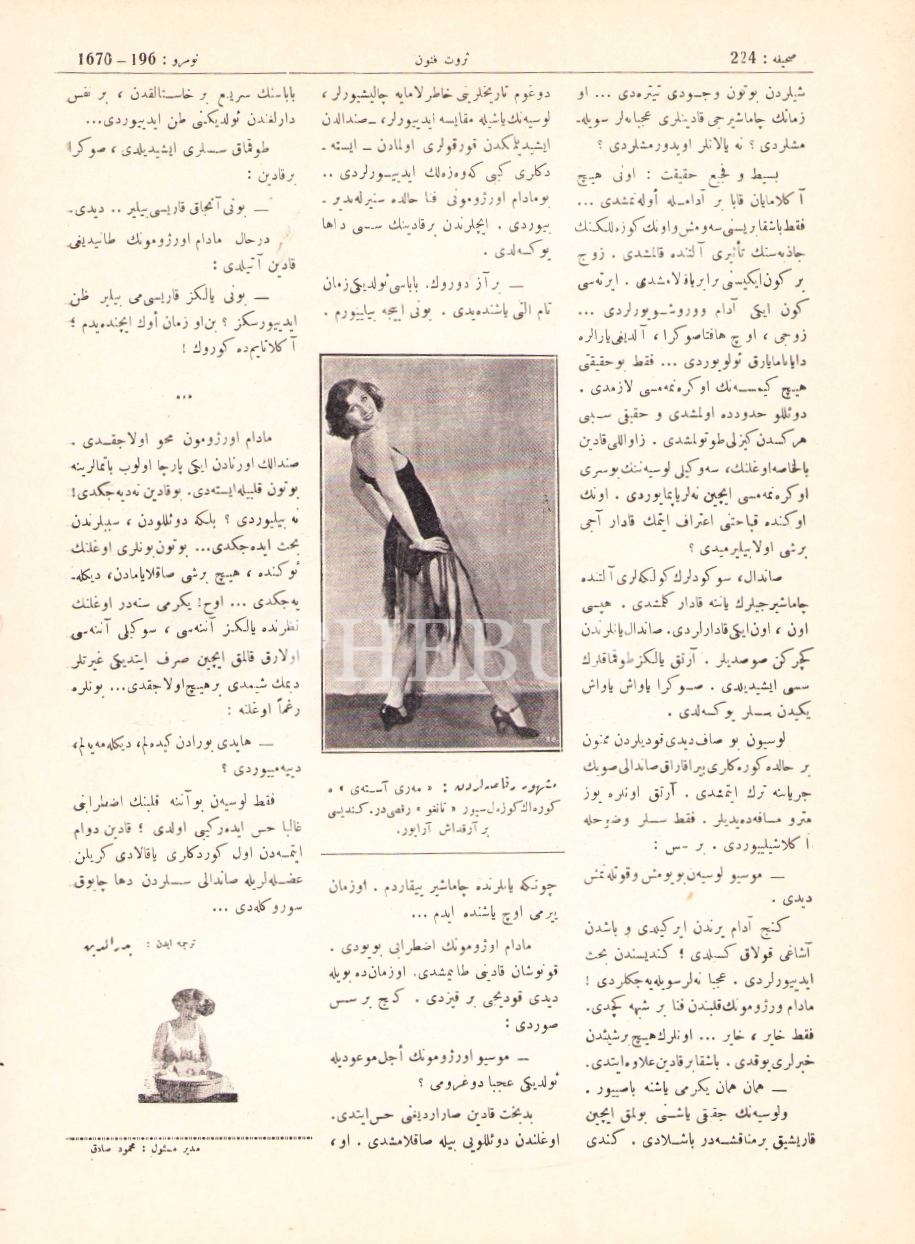 صحیفه : 224
ثروت فنون
نومرو : 196 — 1670
شیلردن بوتون وجودی تیتره‌دی ... او
زمانك چاماشیرجی قادینلری عجبا نه‌لر سویله‌ـ
مشلردی ؟ نه یالانلر اویدورمشلردی ؟
بسیط و فجیع حقیقت : اونی هیچ
آ كلامایان قابا بر آدامله أوله‌نمشدی ...
فقط باشقا بریسنی سه‌ومش واونك كوزه‌للكنك
جاذبه‌سنك تأثیری آلتنده قالمشدی . زوج
بر كون ایكیسنی برابر یاقلامشدی . ایرته‌سی
كون ایكی آدام ووروشیورلردی ...
زوجی ، اوچ هافتا صوكرا ، آلدیغی یارالره
دایانامایارق ئولویوردی ... فقط بو حقیقتی
هیچ كیمسه‌نك اوكره‌نمه‌سی لازمدی .
دوئللو حدودده اولمشدی و حقیقی سببی
هركسدن كیزلی طوتولمشدی . زاواللی قادین
بالخاصه اوغلنك، سه‌وكیلی لوسیه‌ننك بوسری
اوكره‌نمه‌مسی ایچین نه‌لر یاپمایوردی . اونك
اوكنده قباحتنی اعتراف ایتمك قادار آجی
برشی اولابیلیرمیدی ؟
صاندال، سوكودلرك كولكه‌لری آلتنده
چاماشیرجیلرك یاننه قادار كلمشدی . هپسی
اون ، اون ایكی قادارلردی. صاندال یانلرندن
كچركن صوصدیلر . آرتق یالكز طوقماقلرك
سسی ایشیدیلدی . صوكرا یاواش یاواش
یكیدن سسلر یوكسه‌لدی .
لوسیون بو صاف دیدی قودیلردن ممنون
بر حالده كوره‌كلری بیراقاراق صاندالی صویك
جریاننه ترك ایتمشدی . آرتق اونلره یوز
مترو مسافه‌ده‌یدیلر . فقط سسلر وضوحله
آ كلاشیلییوردی . بر سس :
— موسیو لوسیه‌ن بویومش وقوتله‌نمش
دیدی .
كنج آدام یرندن ایركیلدی و باشدن
آشاغی قولاق كسلدی ؛ كندیسندن بحث
ایدییورلردی . عجبا نه‌لر سویله‌یه‌جكلردی !
مادام ورژومونك قلبندن فنا بر شبهه كچدی.
فقط خایر ، خایر ... اونلرك هیچ برشیئدن
خبرلری یوقدی . باشقا بر قادین علاوه ایتدی.
— همان همان یكرمی یاشنه باصییور .
ولوسیه‌نك حقیقی یاشنی بولمق ایچین
قاریشیق بر مناقشه‌در باشلادی . كندی
دوغوم تاریخلرینی خاطرلامایه چالیشیورلر،
لوسیه‌نك یاشیله مقایسه ایدییورلر، صندالدن
ایشیدیلمكدن قورقولری اولمادن — ایسته‌ـ
دكلری كبی كه‌وه‌زه‌لك ایدییورلردی ..
بو مادام اورژومونی فنا حالده سنیرلندیرـ
ییوردی . ایچلرندن بر قادینك سسی داها
یوكسه‌لدی .
— بر آز دوروك. باباسی ئولدیكی زمان
تام آلتی یاشنده‌یدی . بونی اییجه بیلییورم .
مشهور رقاصه‌لردن : « مه‌ری آسته‌ی » ه
كوره‌اك كوزه‌ل سپور « تانغو » رقصی‌در. كندیسی
بر آرقداش آرایور.
چونكه یانلرنده چاماشیر ییقاردم . اوزمان
ییرمی اوچ یاشنده ایدم ...
مادام اوژومونك اضطرابی بویودی .
قونوشان قادینی طانیمشدی. اوزمان‌ده بویله
دیدی قودیجی بر قیزدی . كنج بر سس
صوردی :
— موسیو اورژومونك أجل موعودیله
ئولدیكی عجبا دوغرومی ؟
بدبخت قادین صارارد‌یغنی حس ایتدی.
اوغلندن دوئللویی بیله صاقلامشدی . او،
باباسنك سریع بر خاستالقدن ، بر نفس
دارلغندن ئولدیكنی ظن ایدییوردی...
طوقماق سسلری ایشیدیلدی ، صوكرا
برقادین :
— بونی آنجاق قاریسی بیلیر .. دیدی.
درحال مادام اورژومونك طانیدیغی
قادین آتیلدی :
— بونی یالكز قاریسی‌می بیلیر ظن
ایدییورسكز ؟ بن او زمان أوك ایچنده‌یدم ؛
آ كلاتایم‌ده كوروك !
...
مادام اورژومون محو اولاجقدی .
صندالك اورتادن ایكی پارچا اولوب باتمالرینه
بوتون قلبیله ایسته‌دی. بو قادین نه دیه‌جكدی!
نه بیلییوردی ؟ بلكه دوئللودن ، سببلرندن
بحث ایده‌جكدی... بوتون بونلری اوغلنك
ئوكنده ، هیچ برشی صاقلایامادن، دیكله‌ـ
یه‌جكدی ... اوح! یكرمی سنه‌در اوغلنك
نظرنده یالكز آننه‌سی ، سوكیلی آننه‌سی
اولارق قالمق ایچین صرف ایتدیكی غیرتلر
دیمك شیمدی بر هیچ اولاجقدی... بونلره
رغماً اوغلنه :
— هایدی بورادن كیده‌لم، دیكله‌مه‌یه‌لم،
دییه‌مییوردی ؟
فقط لوسیه‌ن بو آننه قلبنك اضطرابنی
غالبا حس ایده‌ركی اولدی ؛ قادین دوام
ایتمه‌دن اول كوره‌كلری یاقالادی كریلن
عضله‌لریله صاندالی سسلردن دها چابوق
سوروكله‌دی ...
ترجمه ایدن : بدرالدین
مدیر مسئول : محمود صادق